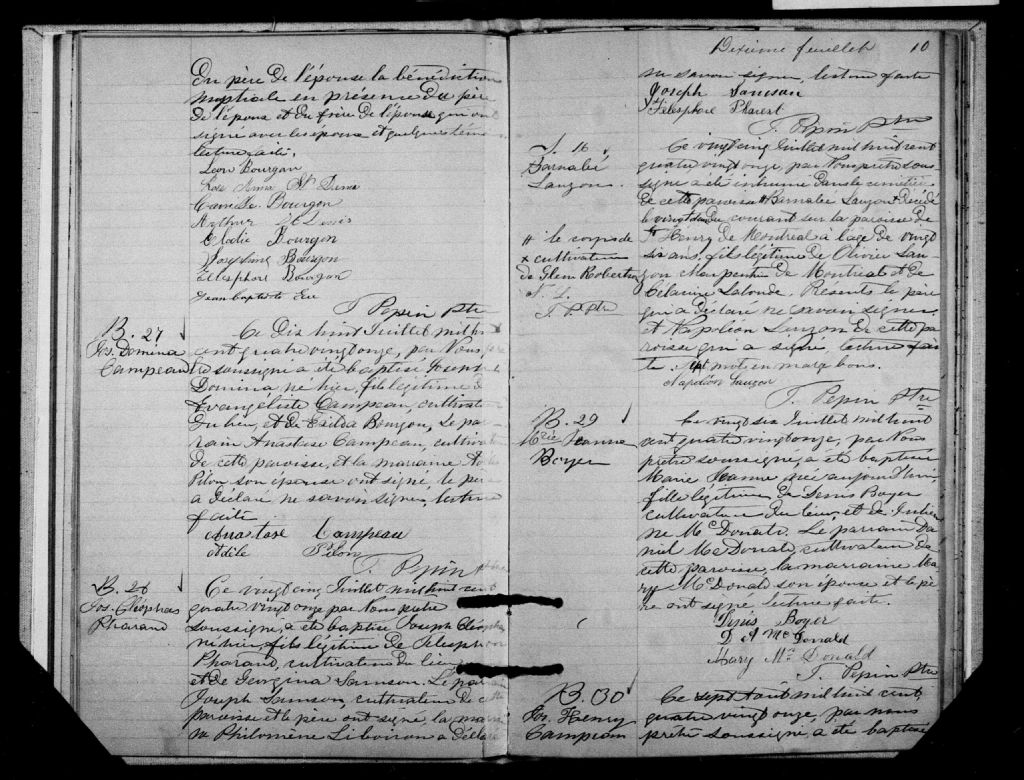 Du père de l'épouse la bénédiction
nuptiale en présence du père
de l'époux et du frère de l'épouse qui ont
signé avec les époux et quelques témoins
lecture faite.
Léon Bourgon
Rose Anna St Denis
Camille Bourgon
Arthur St Denis
Elodie Bourgon
Josephine Bourgon
Télesphore Bourgon
Jean Baptiste
T. Pepin Ptre
B. 27
Jos. Domina
Campeau
Ce dix huit Juillet mil huit
cent quatre vingt onze, par Nous prêtre
soussigné a été baptisé Joseph
Domina né hier, fils légitime de
Evangéliste Campeau, cultivateur
du lieu, et de Exilda Bourgon. Le par
rain Anastase Campeau, cultivateur
de cette paroisse, et la marraine
Pilon son épouse ont signé, le père
a déclaré ne savoir signer, lecture
faite.
Anastase Campeau
Adèle Pilon
T. Pepin Ptre
B. 28
Jos. Cléophas
Pharand
Ce vingt cinq Juillet mil huit cent
quatre vingt onze par Nous prêtre
soussigné, a été baptisé Joseph Cléophas
né hier, fils légitime de Télesphore
Pharand, cultivateur du lieu
et de Georgina Samson. Le parrain
Joseph Samson, cultivateur de cette
paroisse et le père ont signé, la marrai
ne Philomène Liboiron a déclaré
Dixième feuillet 10
ne savoir signer, lecture faite
Joseph Samson
Télesphore Pharant
T. Pepin Ptre
S. 16
Barnabé
Lauzon
Ce vingt cinq Juillet mil huit cent
quatre vingt onze, par Nous prêtre sous
signé a été inhumé dans le cimetière
de cette paroisse # Barnabé Lauzon x décédé
le vingt du courant sur la paroisse de
St Henry de Montréal à l'âge de vingt
six ans, fils légitime de Olivier Lau
zon charpentier de Montréal et de
Célanire Lalonde. Présents le père
qui a déclaré ne savoir signer
et Napoléon Lauzon de cette pa
roisse qui a signé, lecture fai
te. Sept mots en marge bons.
# le corps de
x cultivateur
de Glenn Robertson
T. P. Ptre
Napoléon Lauzon
T. Pepin Ptre
B. 29
Marie Jeanne
Boyer
Ce vingt six Juillet mil huit
cent quatre vingt onze, par Nous
prêtre soussigné, a été baptisée
Marie Jeanne née aujourd'hui,
fille légitime de Denis Boyer
cultivateur du lieu et de Julien
ne McDonald. Le parrain Da
niel McDonald, cultivateur de
cette paroisse, la marraine Ma
ry McDonald son épouse et le pè
re ont signé, lecture faite.
Denis Boyer
D A McDonald
Mary McDonald
T. Pepin Ptre
B. 30
Jos. Henry
Campeau
Ce sept août mil huit cent
quatre vingt onze, par nous
prêtre soussigné, a été baptisé